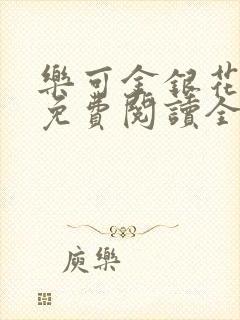 樂可金銀花
免費閱讀全
庾樂